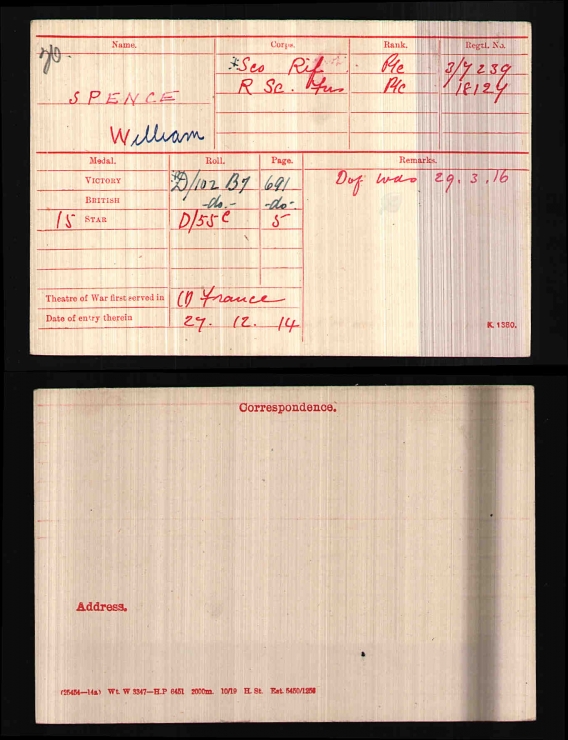 Name. Corps. Rank. Regtl. No.
*Sco Rif Pte 3/7239
SPENCE R Sc. Fus Pte 18124
William
Medal. Roll. Page. Remarks.
VICTORY D/102 B7 691 Dof was 29.3.16
BRITISH -do.- -do-
15 STAR D/55C 5
Theatre of War first served in (1) France
Date of entry therein 27. 12. 14
K. 1380.
Correspondence.
Address.
(25454—14a) Wt. W 3347—H.P 6451 2000m. 10/19 H. St. Est. 5450/1258